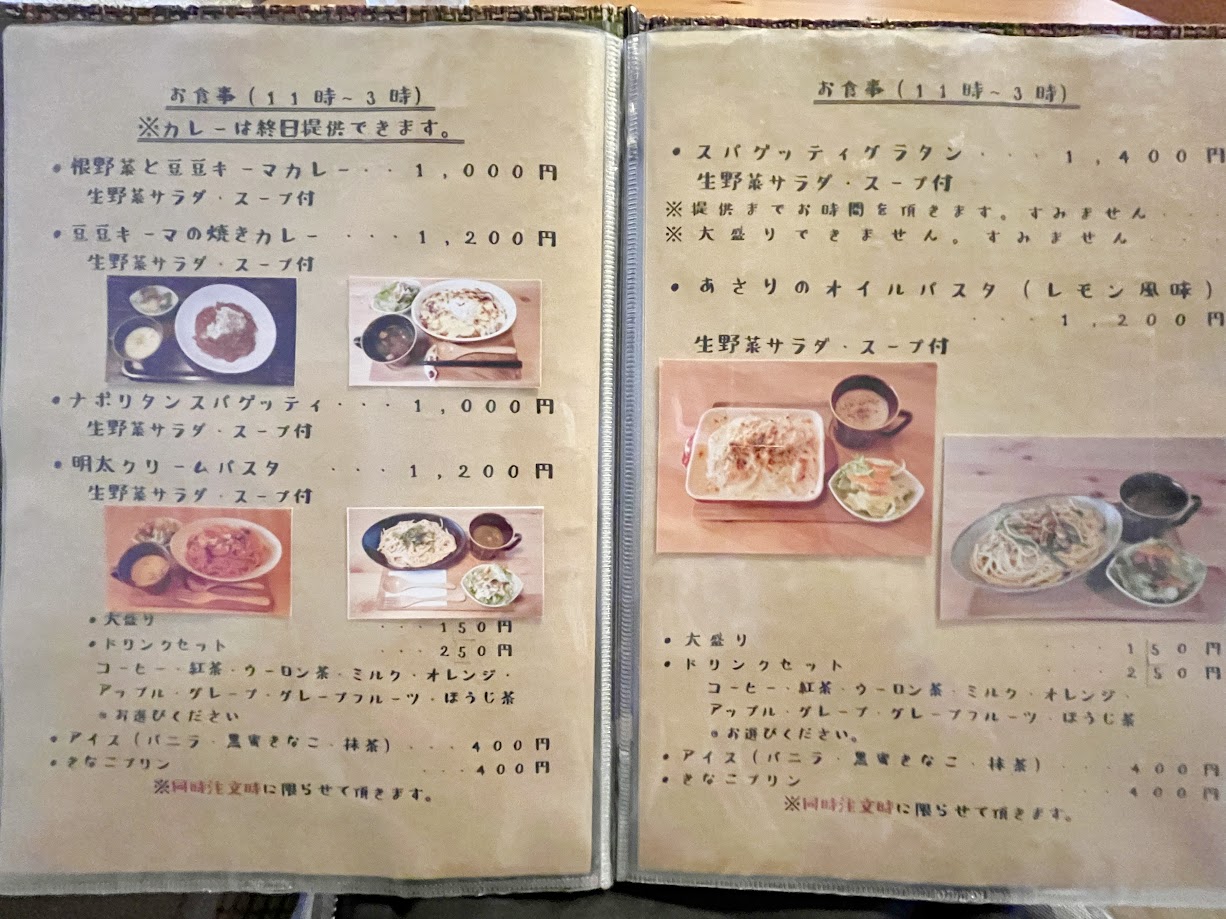 お食事(11時~3時)
※カレーは終日提供できます。
・根野菜と豆豆キーマカレー・・1,000円
生野菜サラダ・スープ付
・豆豆キーマの焼きカレー ・・・1,200円
生野菜サラダ・スープ付
・ナポリタンスパゲッティ・・・1,000円
生野菜サラダ・スープ付
・明太クリームパスタ ・・・1,200円
生野菜サラダ・スープ付
・大盛り ・・・150円
・ドリンクセット ・・・250円
コーヒー・紅茶・ウーロン茶・ミルク・オレンジ・
アップル・グレープ・グレープフルーツ・ほうじ茶
※お選びください
・アイス(バニラ・黒蜜きなこ・抹茶)・・・400円
・きなこプリン ・・・400円
※同時注文時に限らせて頂きます。
お食事(11時~3時)
・スパゲッティグラタン・・・1,400円
生野菜サラダ・スープ付
※提供までお時間を頂きます。すみません・・・
※大盛りできません。すみません・・・
・あさりのオイルパスタ(レモン風味)
・・・1,200円
生野菜サラダ・スープ付
・大盛り ・・・150円
・ドリンクセット ・・・250円
コーヒー・紅茶・ウーロン茶・ミルク・オレンジ・
アップル・グレープ・グレープフルーツ・ほうじ茶
※お選びください。
・アイス(バニラ・黒蜜きなこ・抹茶)・・・400円
・きなこプリン ・・・400円
※同時注文時に限らせて頂きます。